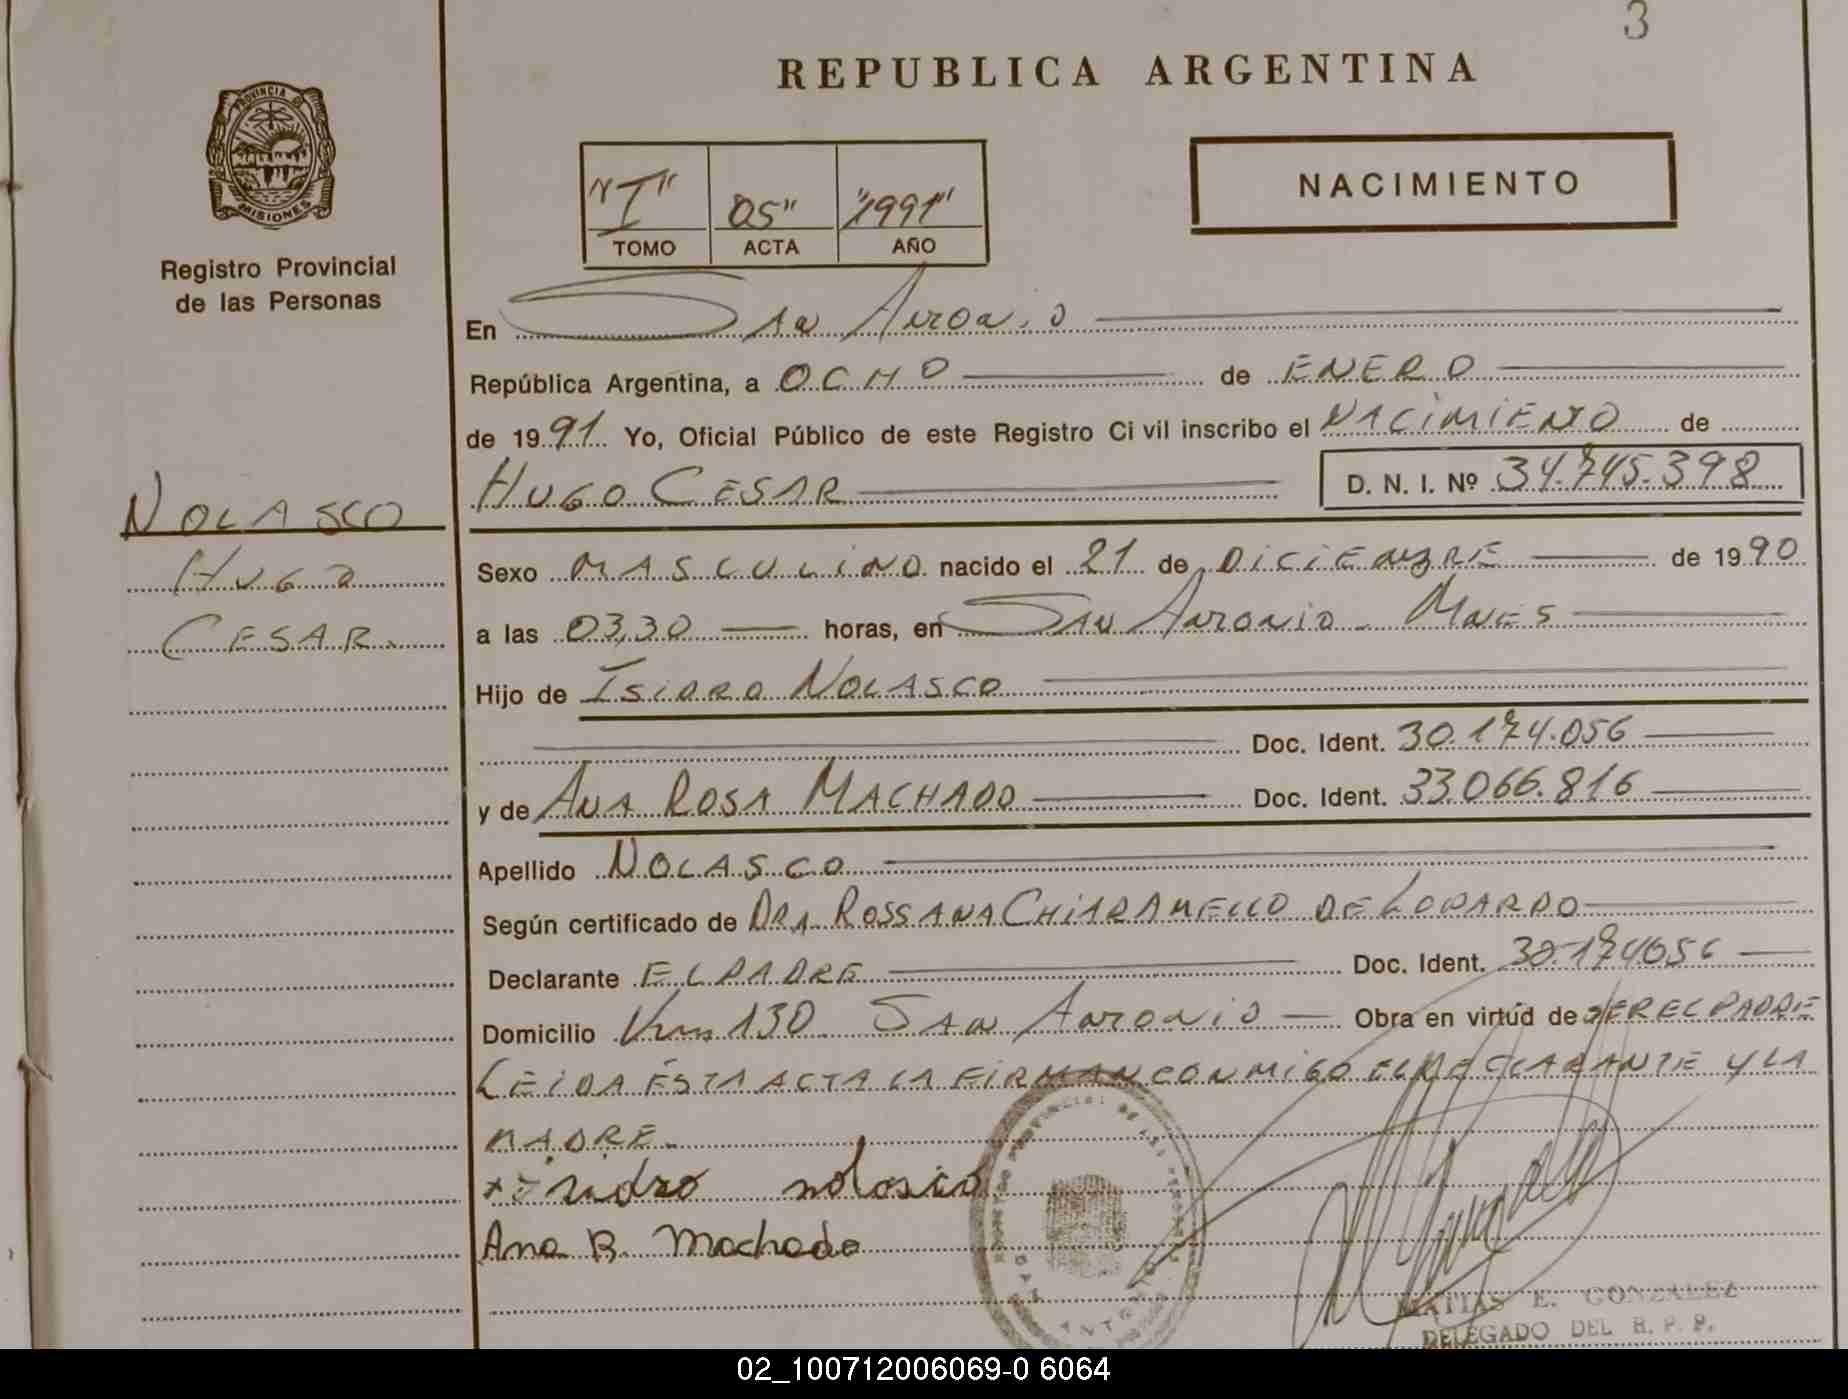 3
REPUBLICA ARGENTINA
PROVINCIA DE
MISIONES
Registro Provincial
de las Personas
"I" 05" "1991"
TOMO ACTA AÑO
NACIMIENTO
En San Antonio
República Argentina, a OCHO de ENERO
de 1991 Yo, Oficial Público de este Registro Ci vil inscribo el NACIMIENTO de
HUGO CESAR D. N. I. Nº 34.745.398
NOLASCO
HUGO
CESAR.
Sexo MASCULINO nacido el 21 de DICIEMBRE de 1990
a las 03,30 horas, en SAN ANTONIO - MNES
Hijo de ISIDRO NOLASCO
Doc. Ident. 30.174.056
y de ANA ROSA MACHADO Doc. Ident. 33.066.816
Apellido NOLASCO
Según certificado de DRA. ROSSANA CHIARAMELLO DE LODARDO
Declarante EL PADRE Doc. Ident. 30.174056
Domicilio Km 130 SAN ANTONIO Obra en virtud de SER EL PADRE
LEIDA ÉSTA ACTA LA FIRMAN CONMIGO EL DECLARANTE Y LA
MADRE.
isidro nolasco
Ana R. Machado
MATIAS E. GONZALEZ
DELEGADO DEL R. P. P.
02_100712006069-0 6064